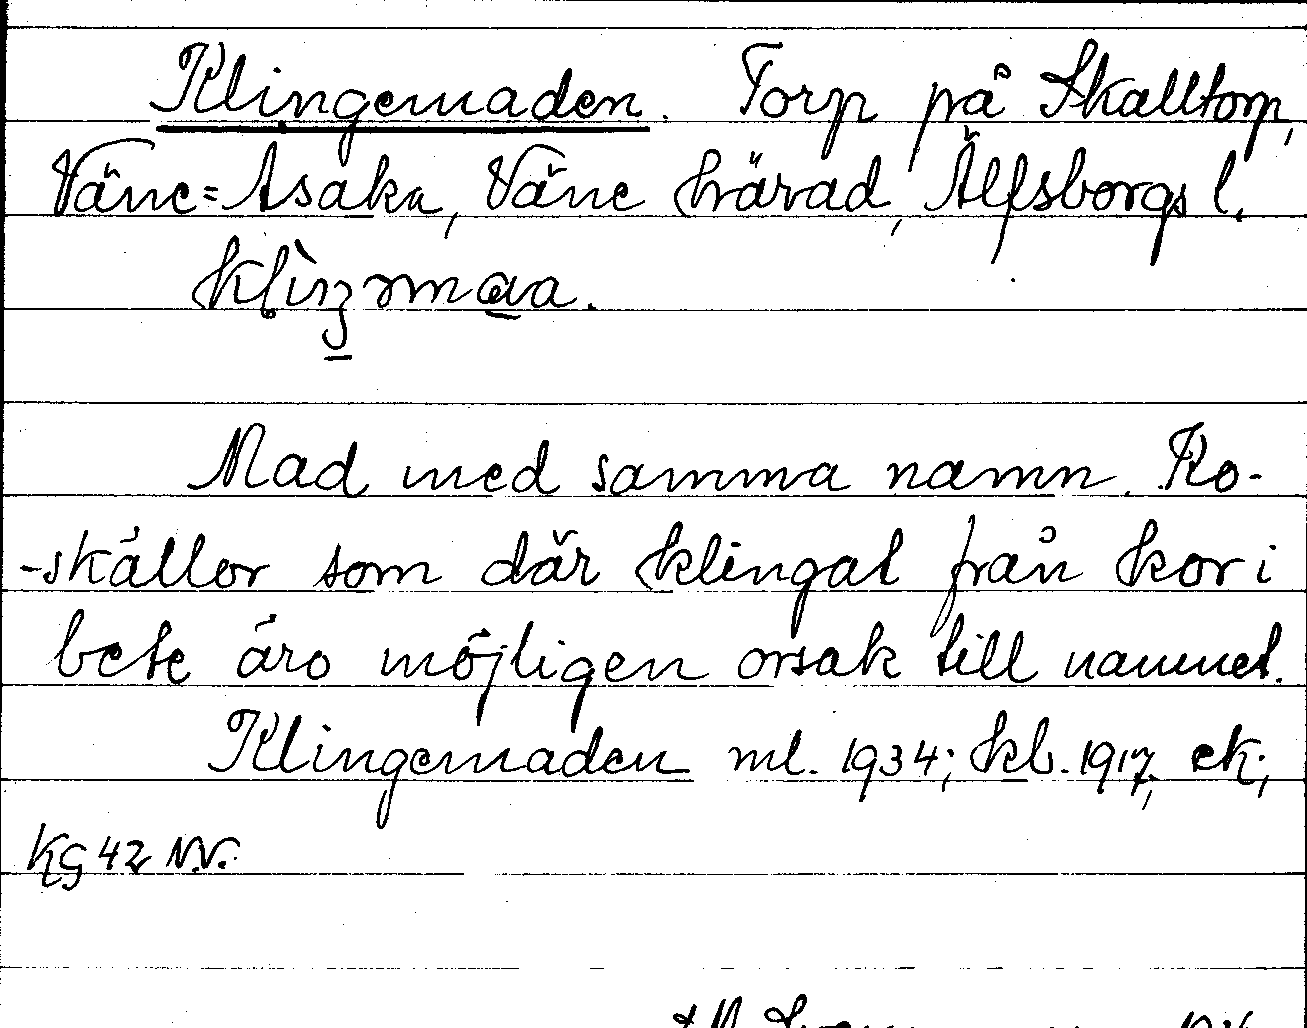 Klingemaden. Torp på Skalltorp,
Väne=Asaka, Väne härad, Älfsborgs l.
Mad med samma namn. Ko-
-skällor som där klingat från kor i
bete äro möjligen orsak till namnet.
Klingemaden ml. 1934; kb. 1917, ek;
KG 42 NV.